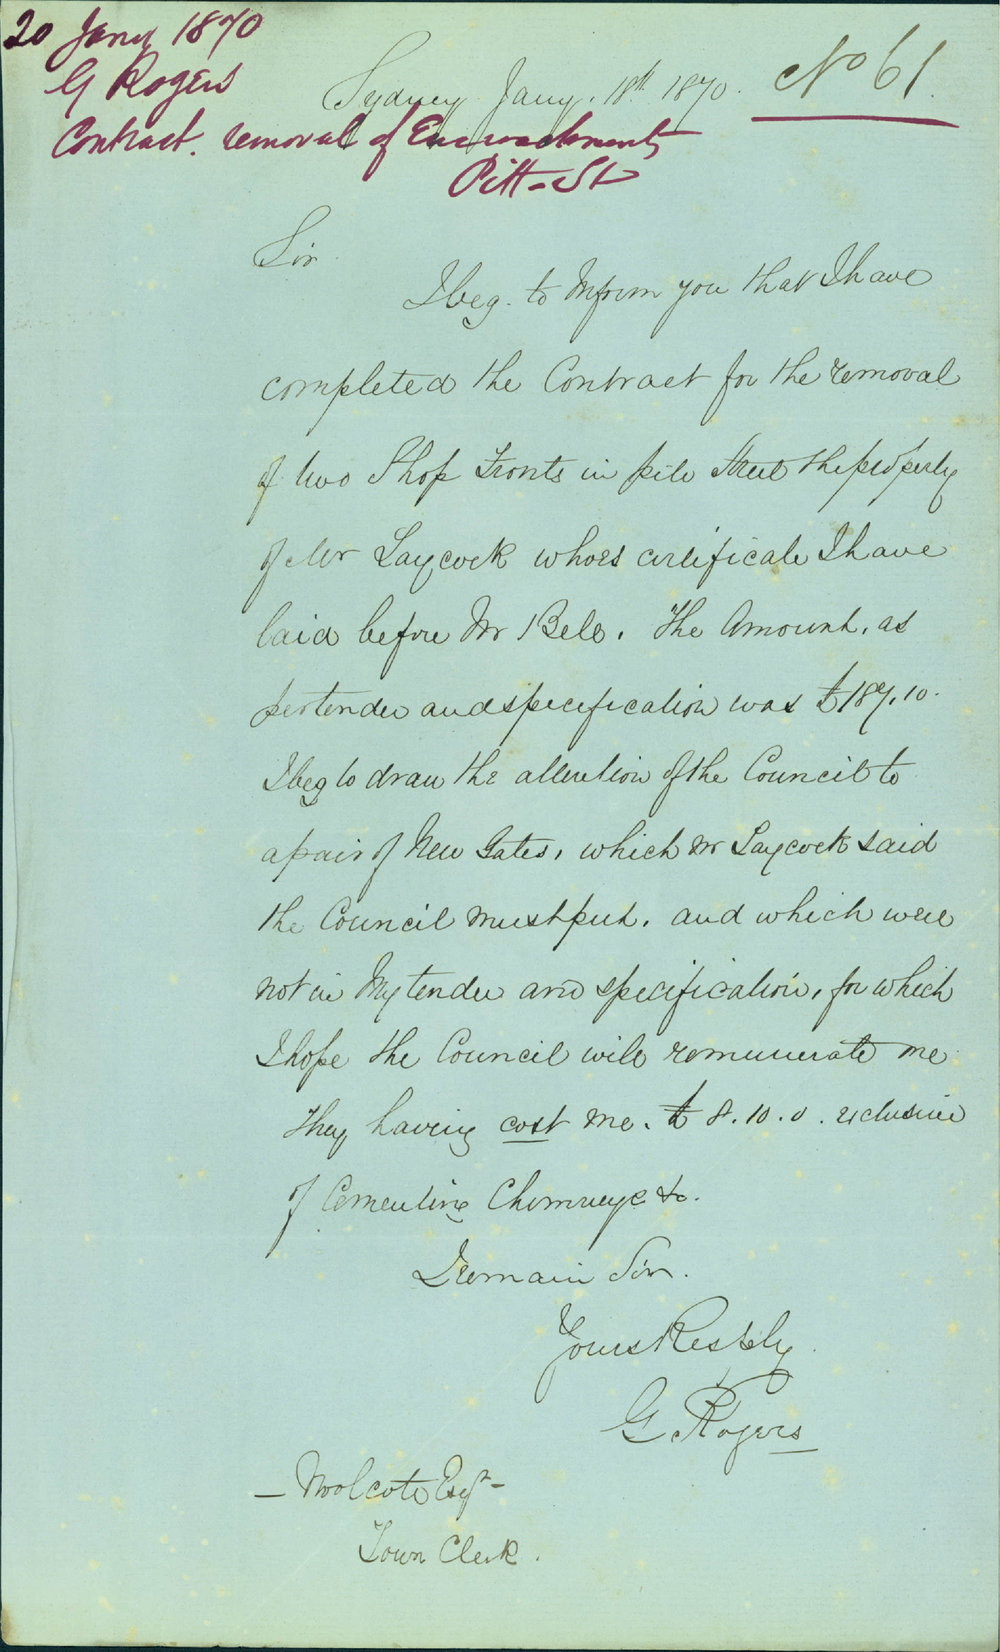 20 Jany 1870
G Rogers
Contract. removal of Encroachments
Pitt-St
Sydney Jany. 18th 1870.
No 61.
Sir
I beg. to Inform you that I have
completed the Contract for the removal
of two Shop Fronts in pitt Street the property
of Mr Laycock whoes certificate I have
laid before Mr Bell. The Amount, as
per tender and specification was £187.10.
I beg to draw the attention of the Council to
a pair of New Gates, which Mr Laycock said
the Council must put. and which were
not in My tender and specification, for which
I hope the Council will remunerate me
They having cost me. £8.10.0. exclusive
of Cementing Chimneys &c.
I remain Sir.
Yours Respctly
G. Rogers
- Woolcott Esqr -
Town Clerk.